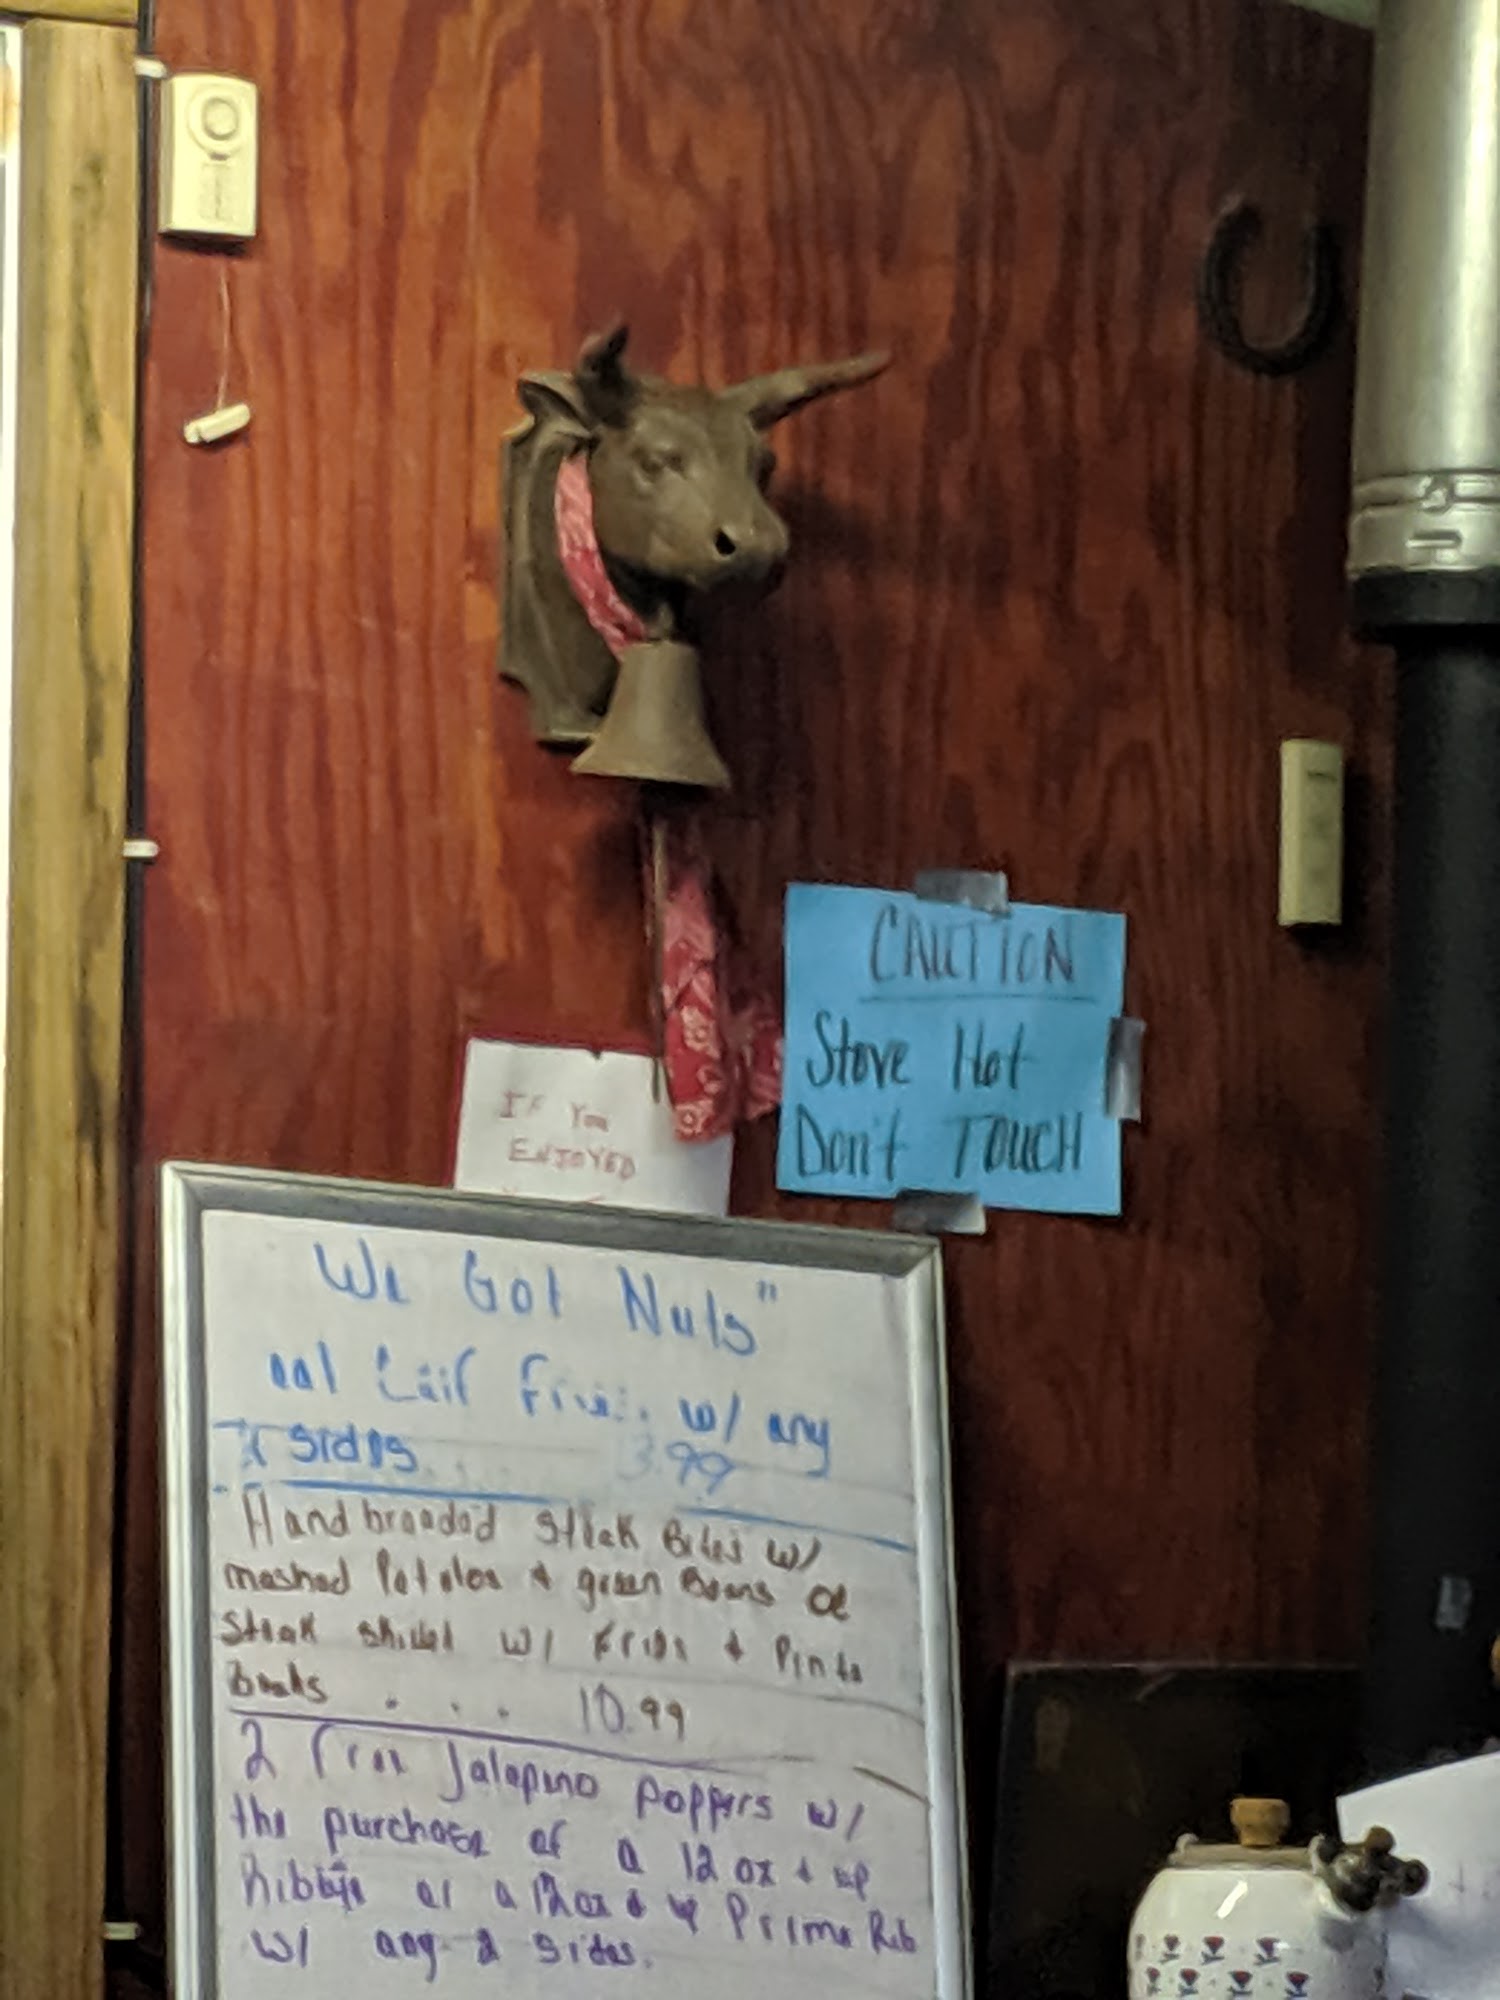 CAUTION
Stove Hot
Don't TOUCH
IF You
ENJOYED
We Got Nuts"
w/ any
sides 3.99
Handbreaded Steak Bites w/
mashed Potatoes & green Beans or
Steak skillet w/ Fries & Pinto
Beans . . . 10.99
2 Free Jalapeno Poppers w/
the purchase of a 12 oz & up
Ribeye or a 12oz & up Prime Rib
w/ any 2 sides.